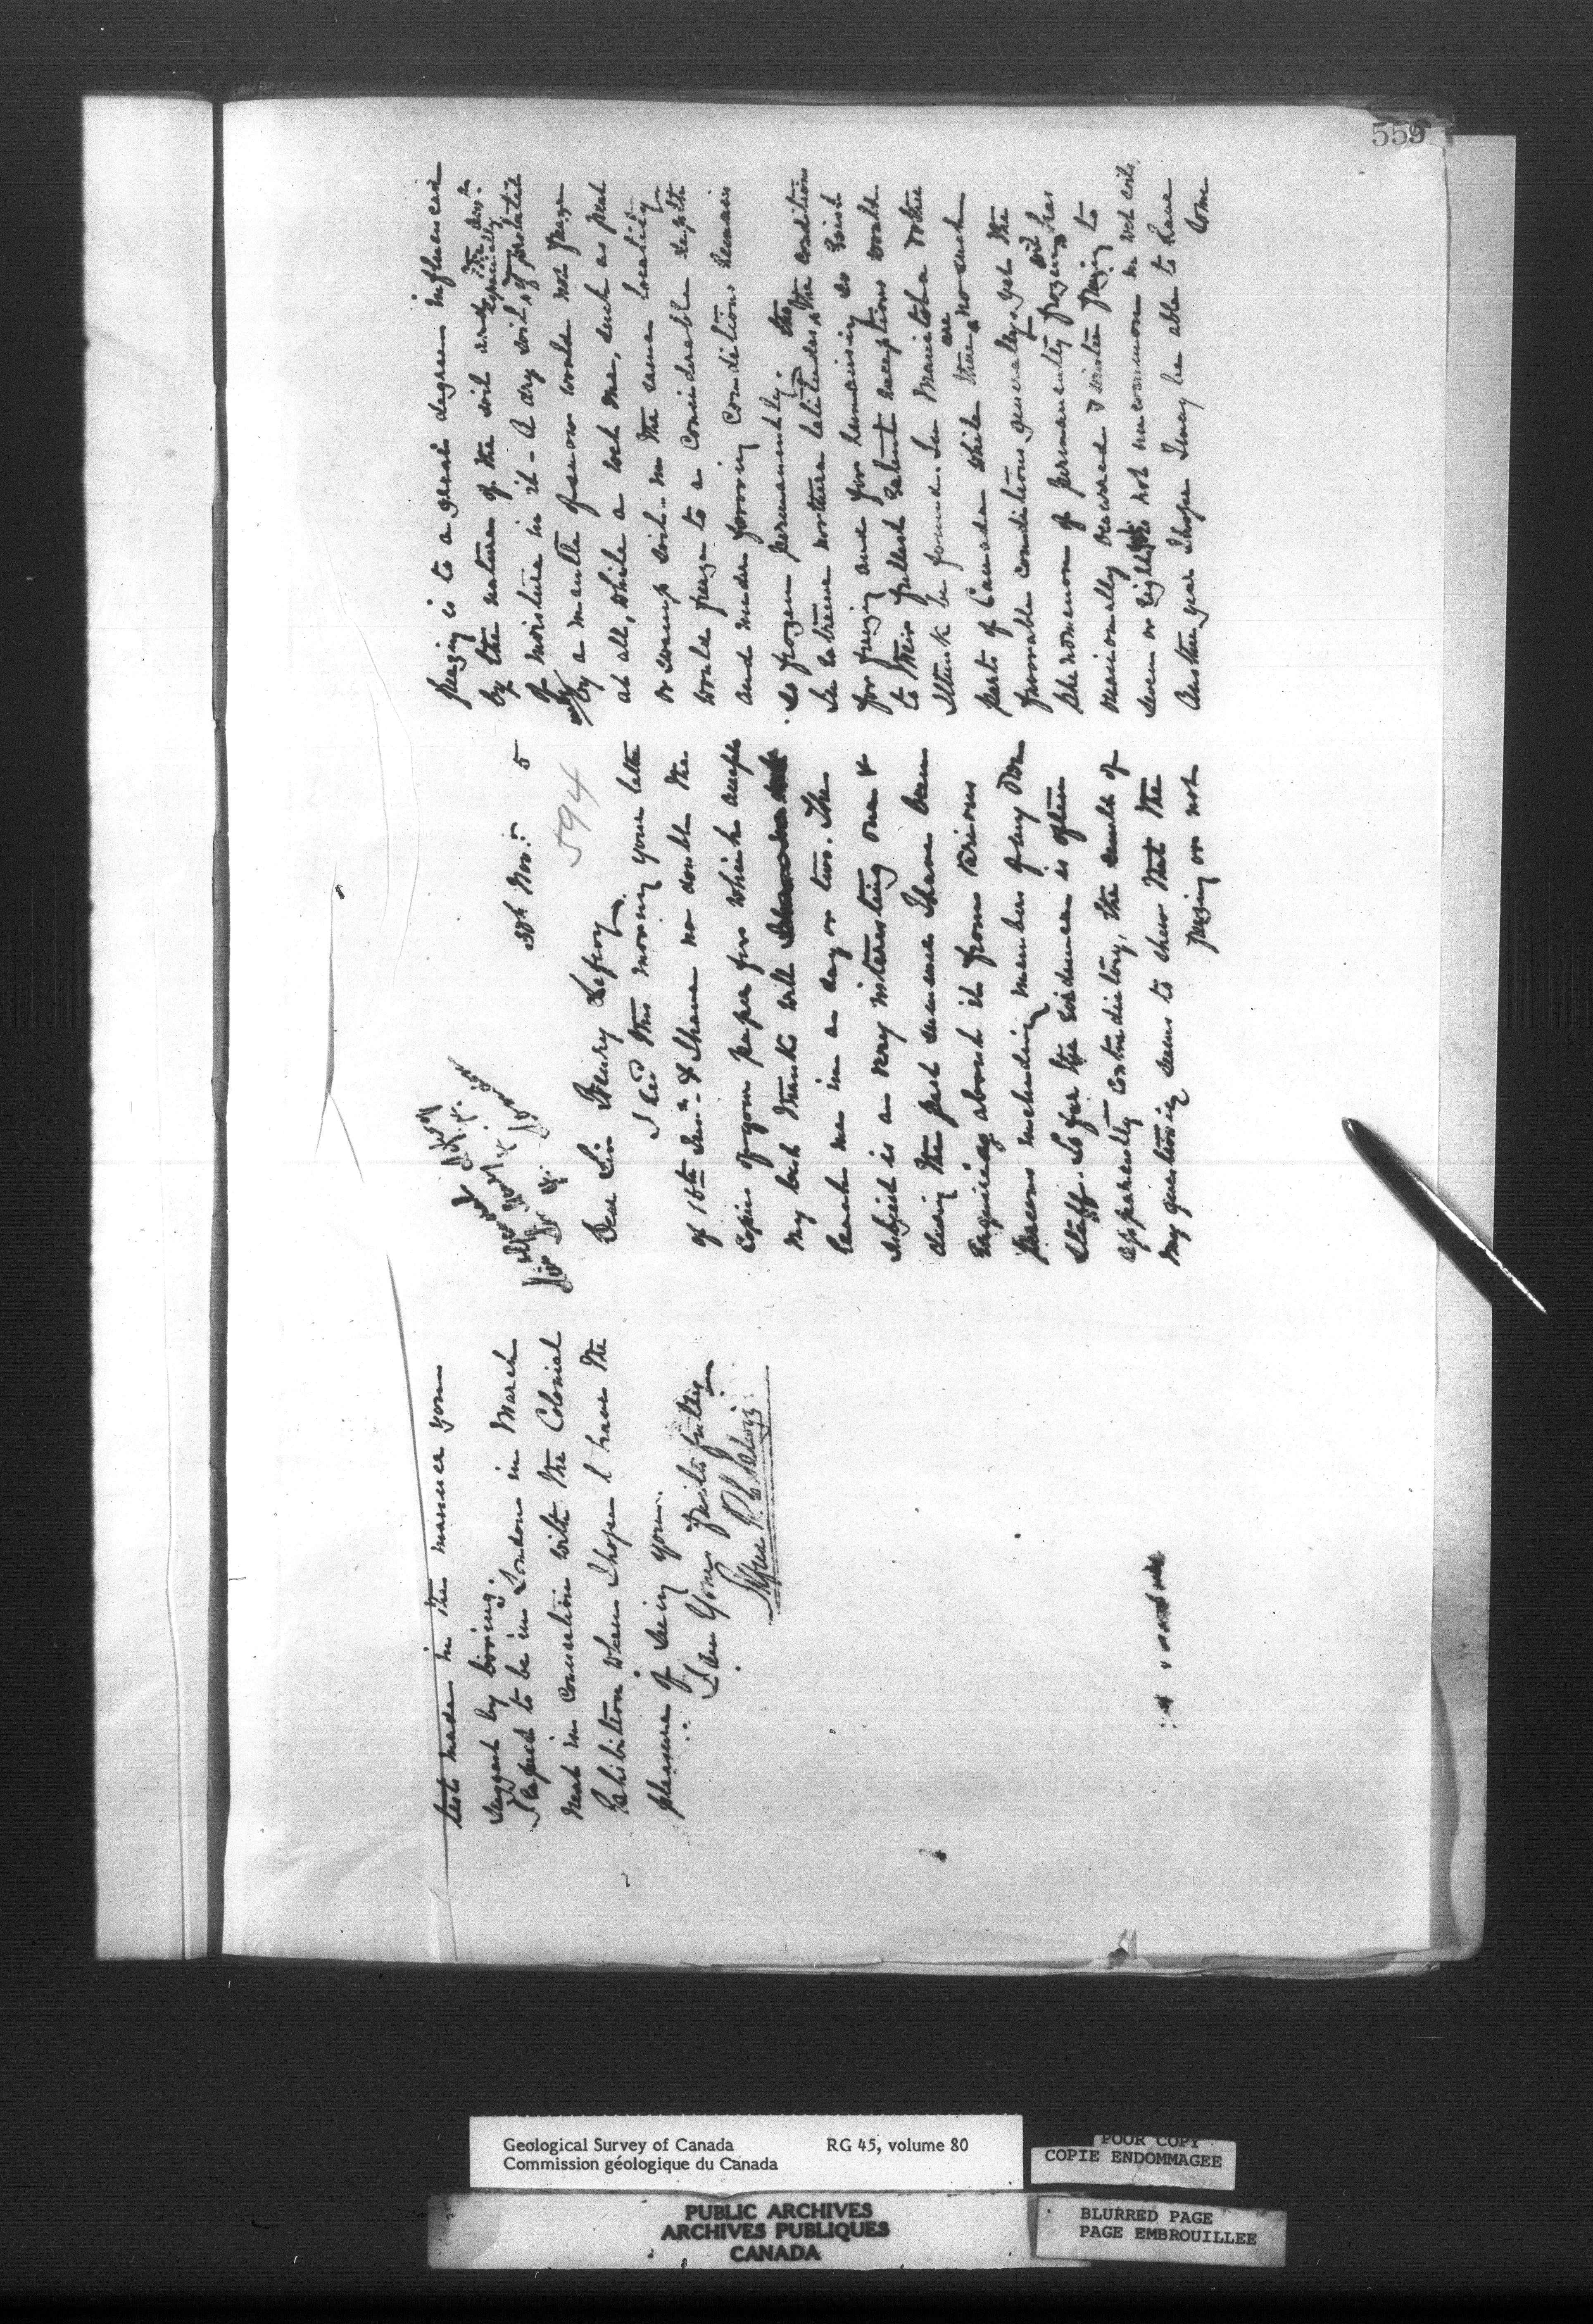 559
30th Nov. 5
594
Dear Sir Henry Lefroy,
I recd this morning your letter
of 16th & I have no doubt the
copies of your paper for which accept
my best thanks will
reach me in a day or two. The
subject is a very interesting one &
during the past summer I have been
enquiring about it from various
persons including members of my own
staff. So far the evidence is often
apparently contradictory, the result of
my questioning seems to shew that the
freezing or not
freezing is to a great degree influenced
by the nature of the soil and the
of moisture in it - A dry soil, especially if protected
by a mantle of snow would not freeze
at all, while a wet one, such as peat
or swamp soil - in the same locality
would freeze to a considerable depth
and under favoring conditions remain
so frozen permanently.
In extreme northern latitudes the conditions
for freezing and for remaining so exist
to their fullest extent exceptions would
I think be found. In Manitoba & other
parts of Canada while there are no such
favorable conditions generally, yet the
phenomenon of permanently frozen soil has
occasionally occurred & winter freezing to
seven or eight ft is not uncommon in wet soils.
Another year I hope I may be able to have
some
tests made in the manner you
suggest by boring.
I expect to be in London in March
next in connection with the Colonial
Exhibition when I hope I have the
pleasure of seeing you.
I am Yours faithfully
Alfred R. C. Selwyn
Geological Survey of Canada RG 45, volume 80
Commission géologique du Canada
POOR COPY
COPIE ENDOMMAGEE
PUBLIC ARCHIVES
ARCHIVES PUBLIQUES
CANADA
BLURRED PAGE
PAGE EMBROUILLEE